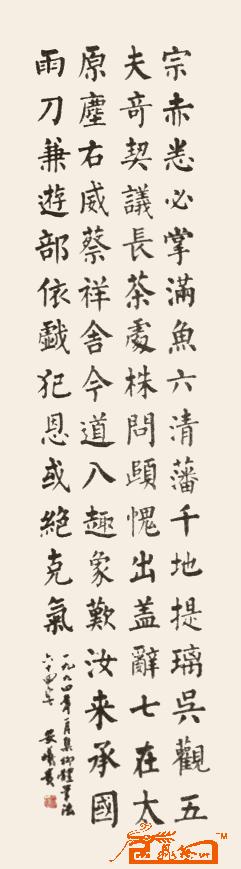 宗赤悉必掌滿魚六清藩千地提璃吳觀五
夫奇契議長茶處株問頤愧出蓋辭七在太
原塵右威蔡祥舍今道八趣象歎汝来承國
雨刀兼遊部依戲犯恩或絶克氣
一九九四年一月集柳體筆法